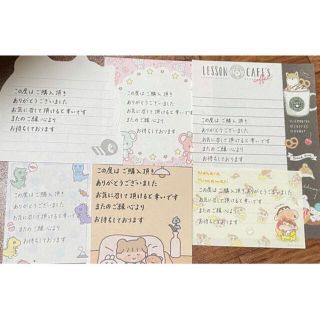 この度はご購入頂き
ありがとうございました
お気に召して頂けると幸いです
またのご縁心より
お待ちしております
この度はご購入頂き
ありがとうございました
お気に召して頂けると幸いです
またのご縁心より
お待ちしております
LESSON CAFE'S
coffee
この度はご購入頂き
ありがとうございました
お気に召して頂けると幸いです
またのご縁心より
お待ちしております
この度はご購入頂き
ありがとうございました
お気に召して頂けると幸いです
またのご縁心より
お待ちしております
この度はご購入頂き
ありがとうございました
お気に召して頂けると幸いです
またのご縁心より
お待ちしております
この度はご購入頂きありがとうございました
お気に召して頂けると幸いです
またのご縁心より
お待ちしております